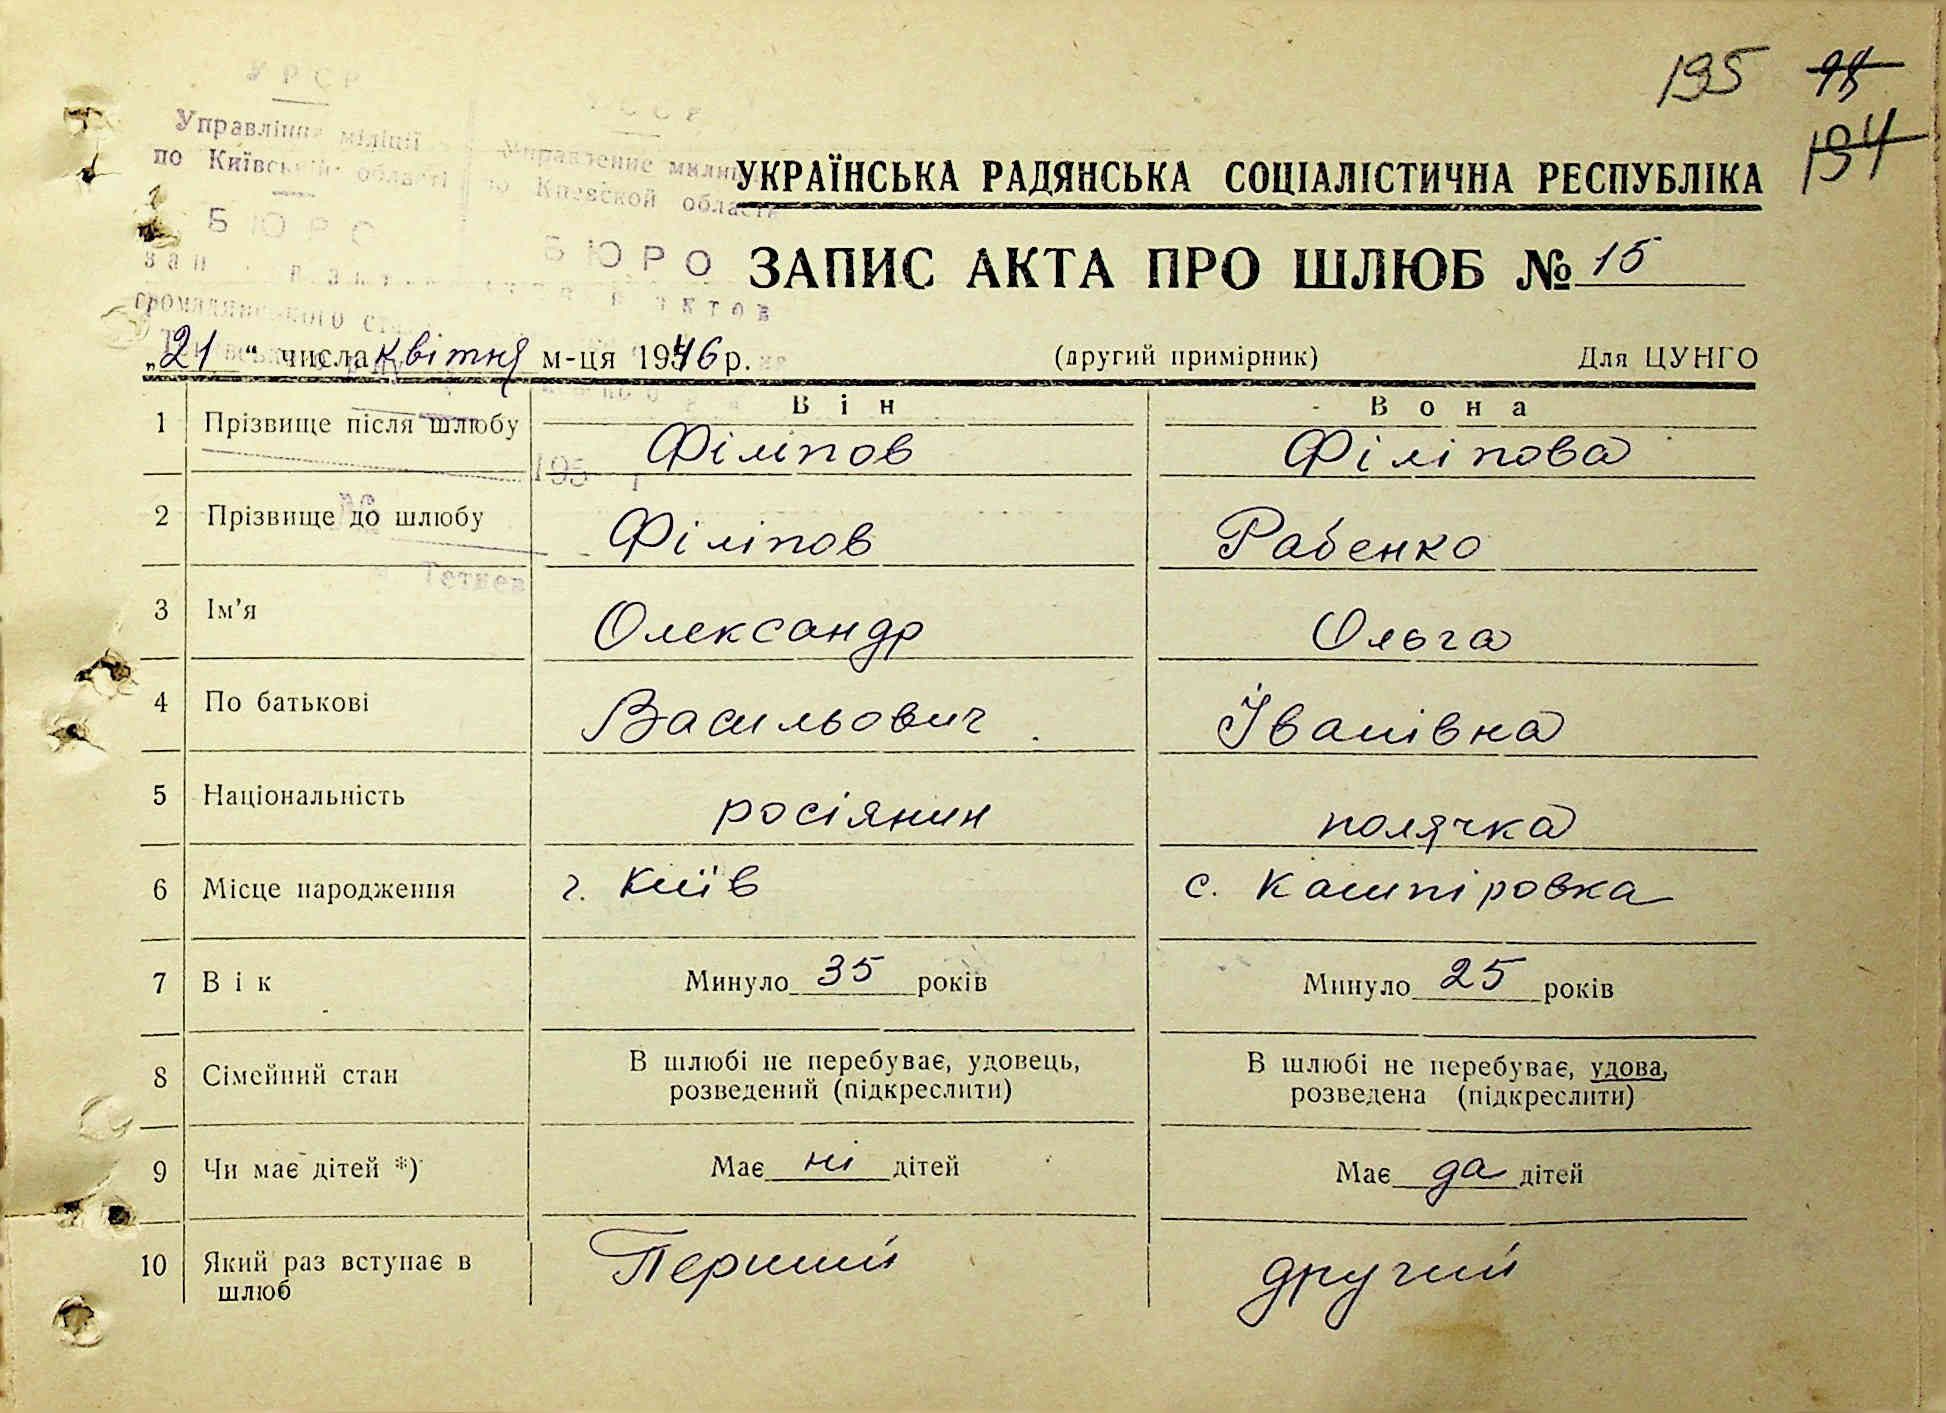 УРСР
Управління міліції
по Київській області
БЮРО
Управление милиции
по Киевской области
БЮРО
195 95
194
УКРАЇНСЬКА РАДЯНСЬКА СОЦІАЛІСТИЧНА РЕСПУБЛІКА
ЗАПИС АКТА ПРО ШЛЮБ № 15
„21“ числа квітня м-ця 1946 р. (другий примірник) Для ЦУНГО
Він Вона
1 Прізвище після шлюбу Філіпов Філіпова
195 г
2 Прізвище до шлюбу Філіпов Рабенко
Тетиев
3 Ім’я Олександр Ольга
4 По батькові Васильович Іванівна
5 Національність росіянин полячка
6 Місце народження г. Київ с. Кашпіровка
7 Вік Минуло 35 років Минуло 25 років
8 Сімейний стан В шлюбі не перебуває, удовець, В шлюбі не перебуває, удова,
розведений (підкреслити) розведена (підкреслити)
9 Чи має дітей *) Має ні дітей Має да дітей
10 Який раз вступає в Перший другий
шлюб